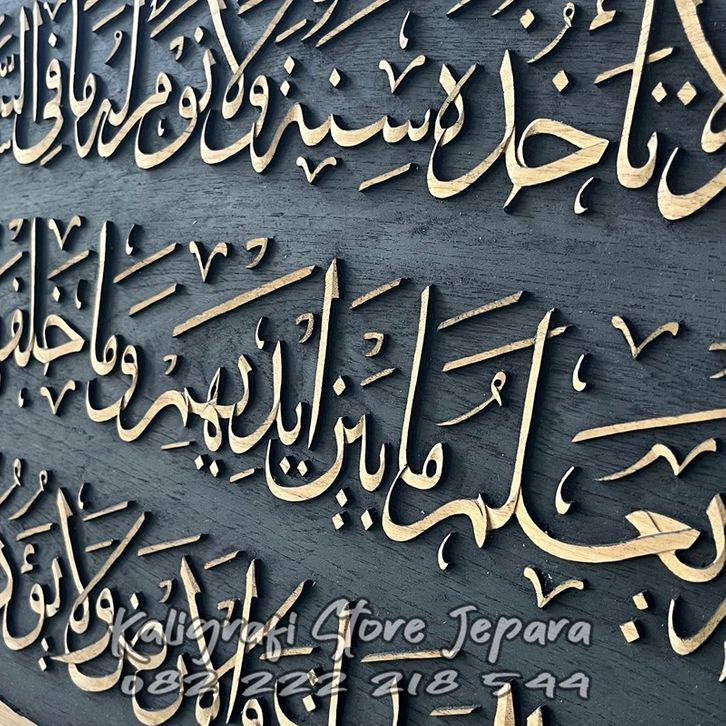 لَا تَأْخُذُهُ سِنَةٌ وَلَا نَوْمٌ لَهُ مَا فِي
يَعْلَمُ مَا بَيْنَ أَيْدِيهِمْ وَمَا خَلْفَ
وَالْأَرْضَ وَلَا يَؤُ
Kaligrafi Store Jepara
082 222 218 544